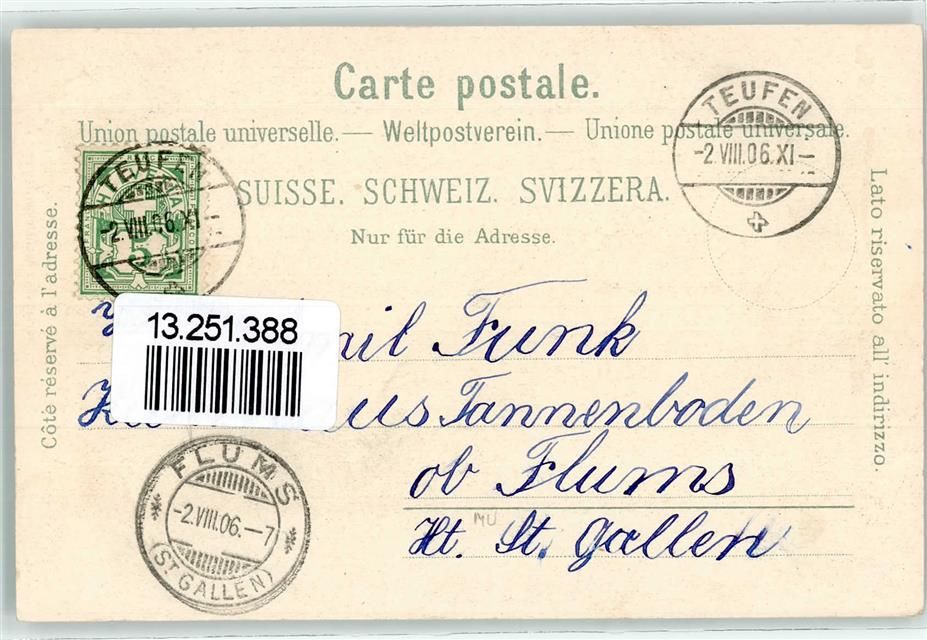 Carte postale.
Union postale universelle. — Weltpostverein. — Unione postale universale.
SUISSE. SCHWEIZ. SVIZZERA.
Nur für die Adresse.
Côté réservé à l'adresse.
Lato riservato all' indirizzo.
TEUFEN
-2.VIII.06.XI-
TEUFEN
-2.VIII.06.XI-
5
13.251.388
Funk
Tannenboden
ob Flums
Kt. St. Gallen
MU
FLUMS
-2.VIII.06.-7
(ST GALLEN)